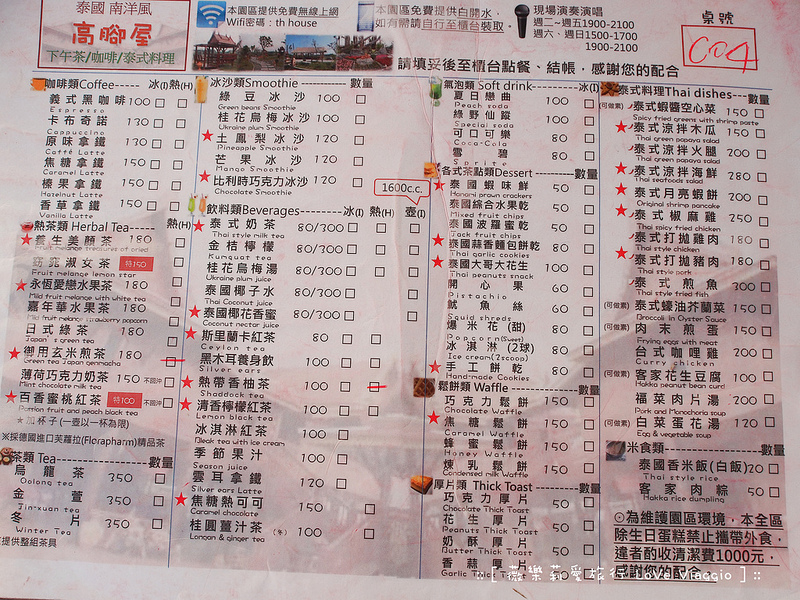 泰國 南洋風
高腳屋
下午茶/咖啡/泰式料理
本園區提供免費無線上網
Wifi密碼：th house
本園區提供免費白開水，
如有需請自行至櫃台裝取。
現場演奏演唱
週二~週五1900-2100
週六、週日1500-1700
1900-2100
桌號
C04
請填妥後至櫃台點餐、結帳，感謝您的配合
咖啡類Coffee------冰(I)熱(H)
義式黑咖啡100
Espresso
卡布奇諾 130
Cappuccino
原味拿鐵 130
Caffé Latte
焦糖拿鐵 150
Caramel Latte
榛果拿鐵 150
Hazelnut Latte
香草拿鐵 150
Vanilla Latte
熱茶類 Herbal Tea-------熱(H)
★養生美顏茶 180
Fruit melange treasures of dried
窈窕淑女茶 特150
Fruit melange lemon star
★永恆愛戀水果茶 180
Mild fruit melange with white tea
嘉年華水果茶 180
Mild fruit melange strawberry popcorn
日式綠茶 180
Japan's green tea
★御用玄米煎茶 180
Green tea Japan genmaicha
薄荷巧克力奶茶 150 不回沖
Mint chocolate milk tea
★百香蜜桃紅茶 特100 不回沖
Passion fruit and peach black tea
★加杯子(一壺以一杯為限)
※採德國進口芙蘿拉(Florapharm)精品茶
茶類 Tea---------------數量
烏龍茶 350
Oolong tea
金萱 350
Jin-xuan tea
冬片 350
Winter Tea
提供整組茶具
冰沙類Smoothie ----------數量
綠豆冰沙 100
Green beans Smoothie
桂花烏梅冰沙 100
Ukraine plum Smoothie
★土鳳梨冰沙 120
Pineapple Smoothie
芒果冰沙 120
Mango Smoothie
★比利時巧克力冰沙 120
Chocolate Smoothie
1600c.c.
飲料類Beverages-------冰(I) 熱(H) 壺(I)
★泰式奶茶 80/300
Thai style milk tea
金桔檸檬 80/300
Kumquat tea
桂花烏梅湯 80/300
Ukraine plum juice
泰國椰子水 80/300
Thai Coconut juice
★泰國椰花香蜜 80/300
Coconut nectar juice
★斯里蘭卡紅茶 80
Ceylon tea
黑木耳養身飲 100
Silver ears
★熱帶香柚茶 100
Shaddock tea
★清香檸檬紅茶 100
Lemon black tea
冰淇淋紅茶 100
Bleak tea with ice cream
季節果汁 100
Season juice
雲耳拿鐵 120
Silver ears Latte
★焦糖熱可可 150
Caramel chocolate
桂圓薑汁茶 (冬) 100
Longan & ginger tea
氣泡類 Soft drink------冰(I)
夏日戀曲 100
Peach soda
綠野仙蹤 100
Special soda
可口可樂 80
Coca-Cola
雪碧 80
Sprite
各式茶點類Dessert------數量
★泰國蝦味鮮 50
Hanami prawn crackers
泰國綜合水果乾 50
Mixed fruit chips
泰國波羅蜜乾 50
Jack fruit chips
★泰國蒜香麵包餅乾 50
Thai garlic cookies
★泰國大哥大花生 100
Thai peanuts snack
開心果 60
Pistachio
魷魚絲 60
Squid shreds
爆米花(甜) 80
Popcorn(Sweet)
冰淇淋 (2球) 80
Ice cream(2scoop)
★手工餅乾 80
Hand-made Cookies
鬆餅類 Waffle ----------數量
巧克力鬆餅 150
Chocolate Waffle
★焦糖鬆餅 150
Caramel Waffle
蜂蜜鬆餅 150
Honey Waffle
煉乳鬆餅 150
Condensed milk Waffle
厚片類 Thick Toast-------數量
巧克力厚片 50
Chocolate Thick Toast
花生厚片 50
Peanuts Thick Toast
奶酥厚片 50
Butter Thick Toast
香蒜厚片 50
Garlic Thick Toast
泰式料理Thai dishes---數量
(可做素) 泰式蝦醬空心菜 150
Spicy fried greens with shrimp paste
★泰式涼拌木瓜 150
Thai green papaya salad
★泰式涼拌火腿 200
Thai green papaya salad
★泰式涼拌海鮮 280
Thai seafoods salad
★泰式月亮蝦餅 200
Original shrimp pancake
★泰式椒麻雞 250
Thai spicy chicken
★泰式打拋雞肉 180
Thai style chicken
★泰式打拋豬肉 180
Thai style pork
泰式煎魚 300
Thai style fried fish
(可做素) 泰式蠔油芥蘭菜 150
Broccoli in Oyster Sauce
(可做素) 肉末煎蛋 150
Frying eggs with meat
台式咖哩雞 200
Curry chicken
(可做素) 客家花生豆腐 100
Hakka peanut bean curd
福菜肉片湯 200
Pork and Monochoria soup
(可做素) 白菜蛋花湯 120
Egg & vegetable soup
米食類----------------數量
泰國香米飯(白飯)20
Thai style rice
客家肉粽 50
Hakka rice dumpling
⊙為維護園區環境，本全區
除生日蛋糕禁止攜帶外食，
違者酌收清潔費1000元，
感謝您的配合
::[ 薇樂莉愛旅行 Love Viaggio ]::